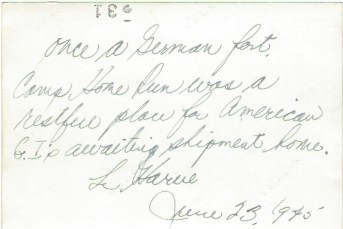 831
once a German fort.
Camp Home Run was a
restful place for American
G.I's awaiting shipment home.
Le Havre
June 23, 1945